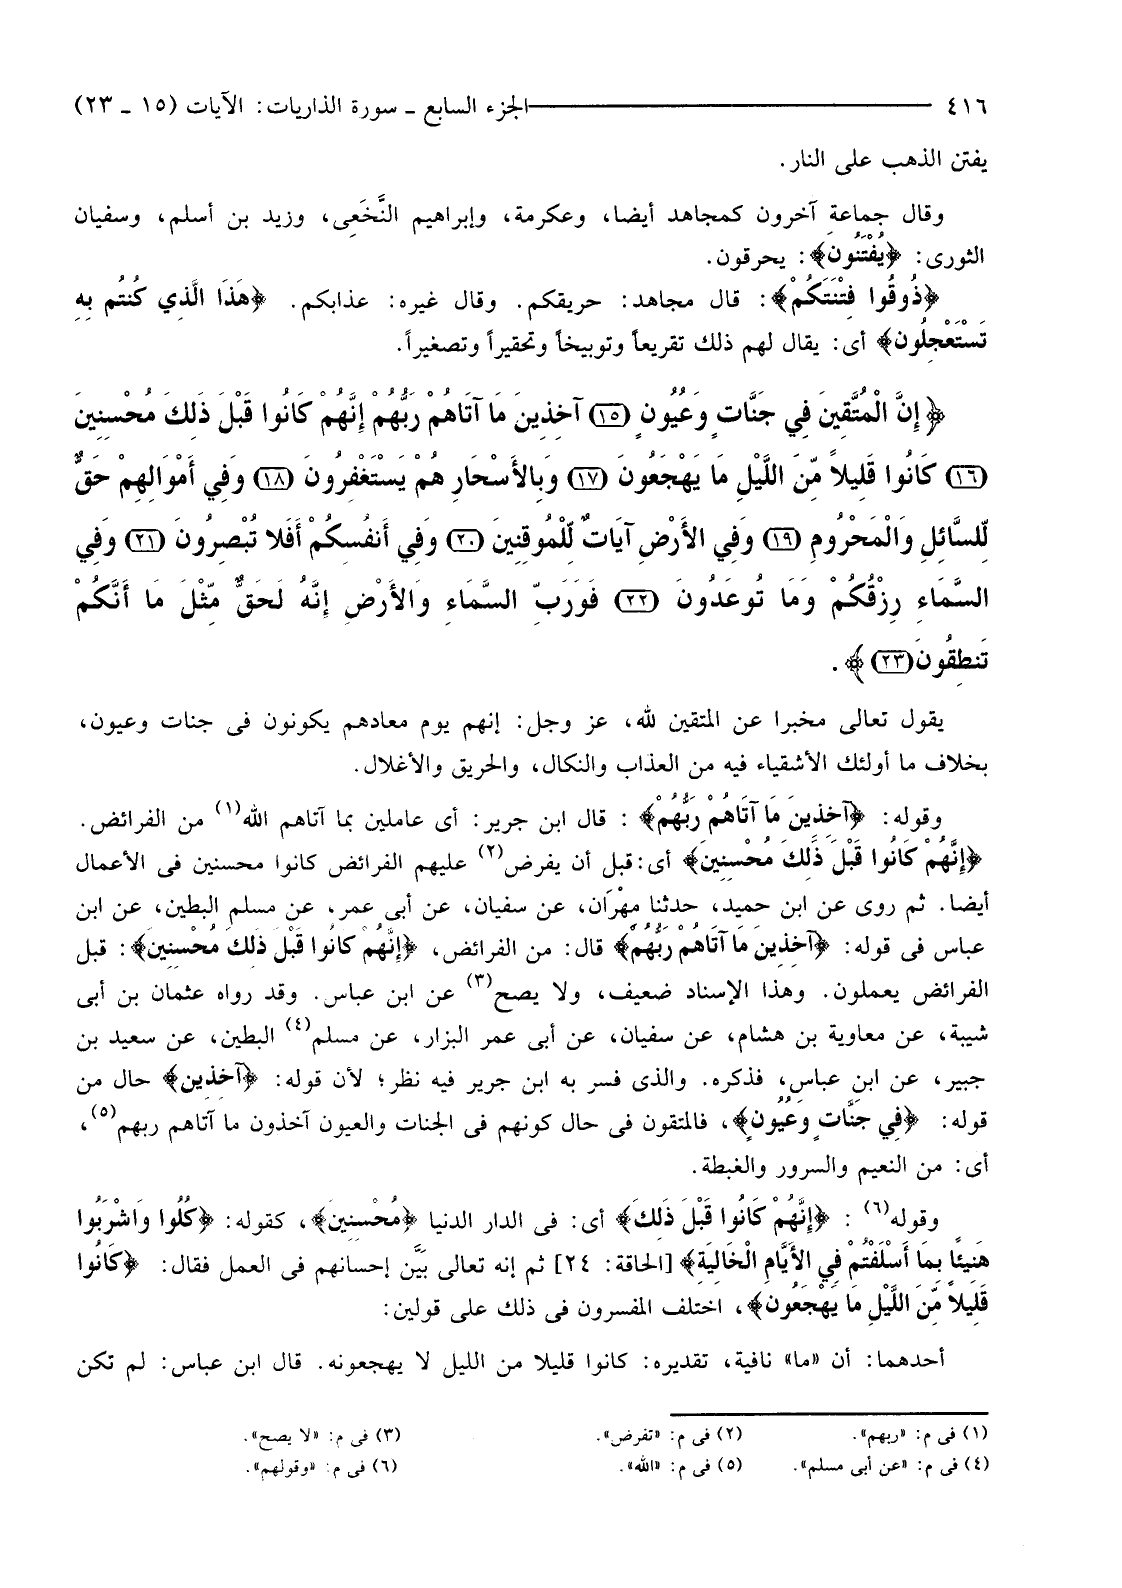 ٤١٦ ـــــــــــ الجزء السابع ـ سورة الذاريات: الآيات (١٥ ـ ٢٣)
يفتن الذهب على النار.
وقال جماعة آخرون كمجاهد أيضا، وعكرمة، وإبراهيم النَّخَعِى، وزيد بن أسلم، وسفيان
الثورى: ﴿يُفْتَنُونَ﴾: يحرقون.
﴿ذُوقُوا فِتْنَتَكُمْ﴾: قال مجاهد: حريقكم. وقال غيره: عذابكم. ﴿هَذَا الَّذِي كُنتُم بِهِ
تَسْتَعْجِلُونَ﴾ أى: يقال لهم ذلك تقريعاً وتوبيخاً وتحقيراً وتصغيراً.
﴿إِنَّ الْمُتَّقِينَ فِي جَنَّاتٍ وَعُيُونٍ (١٥) آخِذِينَ مَا آتَاهُمْ رَبُّهُمْ إِنَّهُمْ كَانُوا قَبْلَ ذَلِكَ مُحْسِنِينَ
(١٦) كَانُوا قَلِيلاً مِّنَ اللَّيْلِ مَا يَهْجَعُونَ (١٧) وَبِالأَسْحَارِ هُمْ يَسْتَغْفِرُونَ (١٨) وَفِي أَمْوَالِهِمْ حَقٌّ
لِّلسَّائِلِ وَالْمَحْرُومِ (١٩) وَفِي الأَرْضِ آيَاتٌ لِّلْمُوقِنِينَ (٢٠) وَفِي أَنفُسِكُمْ أَفَلا تُبْصِرُونَ (٢١) وَفِي
السَّمَاءِ رِزْقُكُمْ وَمَا تُوعَدُونَ (٢٢) فَوَرَبِّ السَّمَاءِ وَالأَرْضِ إِنَّهُ لَحَقٌّ مِّثْلَ مَا أَنَّكُمْ
تَنطِقُونَ (٢٣)﴾.
يقول تعالى مخبرا عن المتقين لله، عز وجل: إنهم يوم معادهم يكونون فى جنات وعيون،
بخلاف ما أولئك الأشقياء فيه من العذاب والنكال، والحريق والأغلال.
وقوله: ﴿آخِذِينَ مَا آتَاهُمْ رَبُّهُمْ﴾ : قال ابن جرير: أى عاملين بما آتاهم الله(١) من الفرائض.
﴿إِنَّهُمْ كَانُوا قَبْلَ ذَلِكَ مُحْسِنِينَ﴾ أى: قبل أن يفرض(٢) عليهم الفرائض كانوا محسنين فى الأعمال
أيضا. ثم روى عن ابن حميد، حدثنا مِهْرَان، عن سفيان، عن أبى عمر، عن مسلم البطين، عن ابن
عباس فى قوله: ﴿آخِذِينَ مَا آتَاهُمْ رَبُّهُمْ﴾ قال: من الفرائض، ﴿إِنَّهُمْ كَانُوا قَبْلَ ذَلِكَ مُحْسِنِينَ﴾: قبل
الفرائض يعملون. وهذا الإسناد ضعيف، ولا يصح(٣) عن ابن عباس. وقد رواه عثمان بن أبى
شيبة، عن معاوية بن هشام، عن سفيان، عن أبى عمر البزار، عن مسلم(٤) البطين، عن سعيد بن
جبير، عن ابن عباس، فذكره. والذى فسر به ابن جرير فيه نظر؛ لأن قوله: ﴿آخِذِينَ﴾ حال من
قوله: ﴿فِي جَنَّاتٍ وَعُيُونٍ﴾، فالمتقون فى حال كونهم فى الجنات والعيون آخذون ما آتاهم ربهم(٥)،
أى: من النعيم والسرور والغبطة.
وقوله(٦) : ﴿إِنَّهُمْ كَانُوا قَبْلَ ذَلِكَ﴾ أى: فى الدار الدنيا ﴿مُحْسِنِينَ﴾، كقوله: ﴿كُلُوا وَاشْرَبُوا
هَنِيئاً بِمَا أَسْلَفْتُمْ فِي الأَيَّامِ الْخَالِيَةِ﴾ [الحاقة: ٢٤] ثم إنه تعالى بَيَّن إحسانهم فى العمل فقال: ﴿كَانُوا
قَلِيلاً مِّنَ اللَّيْلِ مَا يَهْجَعُونَ﴾، اختلف المفسرون فى ذلك على قولين:
أحدهما: أن «ما» نافية، تقديره: كانوا قليلا من الليل لا يهجعونه. قال ابن عباس: لم تكن
(١) فى م: «ربهم». (٢) فى م: «تفرض». (٣) فى م: «لا يصح».
(٤) فى م: «عن أبى مسلم». (٥) فى م: «الله». (٦) فى م: «وقولهم».